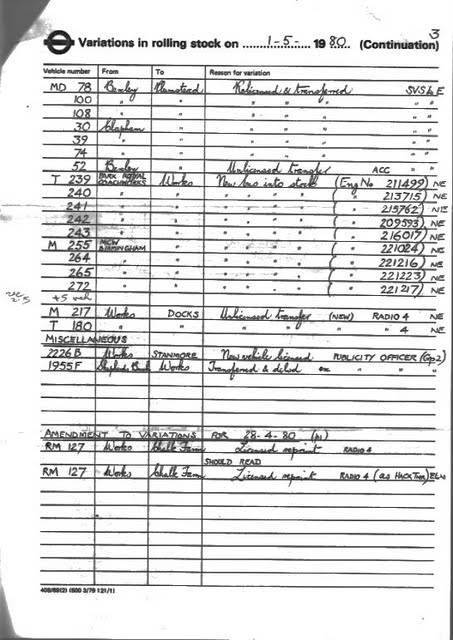 3
Variations in rolling stock on 1-5- 1980 (Continuation)
Vehicle number From To Reason for variation
MD 78 Bexley Plumstead Relicensed & transferred SVS & E
100 " " " " " "
108 " " " " " "
30 Clapham " " " " "
39 " " " " " "
74 " " " " " "
52 Bexley " Unlicensed transfer ACC " "
T 239 PARK ROYAL COACHWORKS Works New bus into stock (Eng No 211499) NE
240 " " " " " " ( " 213715) NE
241 " " " " " " ( " 215762) NE
242 " " " " " " ( " 209593) NE
243 " " " " " " ( " 216017) NE
M 255 MCW BIRMINGHAM " " " " " ( " 221024) NE
264 " " " " " " ( " 221216) NE
265 " " " " " " ( " 221223) NE
272 " " " " " " ( " 221217) NE
2-5
+5 veh
M 217 Works DOCKS Unlicensed transfer (NEW) RADIO 4 NE
T 180 " " " " " " 4 NE
MISCELLANEOUS
2226 B Works STANMORE New vehicle licensed PUBLICITY OFFICER (Gp2)
1955 F Shepherds Bush Works Transferred & delvd " " "
AMENDMENT TO VARIATIONS FOR 28-4-80 (p1)
RM 127 Works Chalk Farm Licensed repaint RADIO 4
SHOULD READ
RM 127 Works Chalk Farm Licensed repaint RADIO 4 (as HACK Thos)
408/69(2) (500 3/79 121/1)